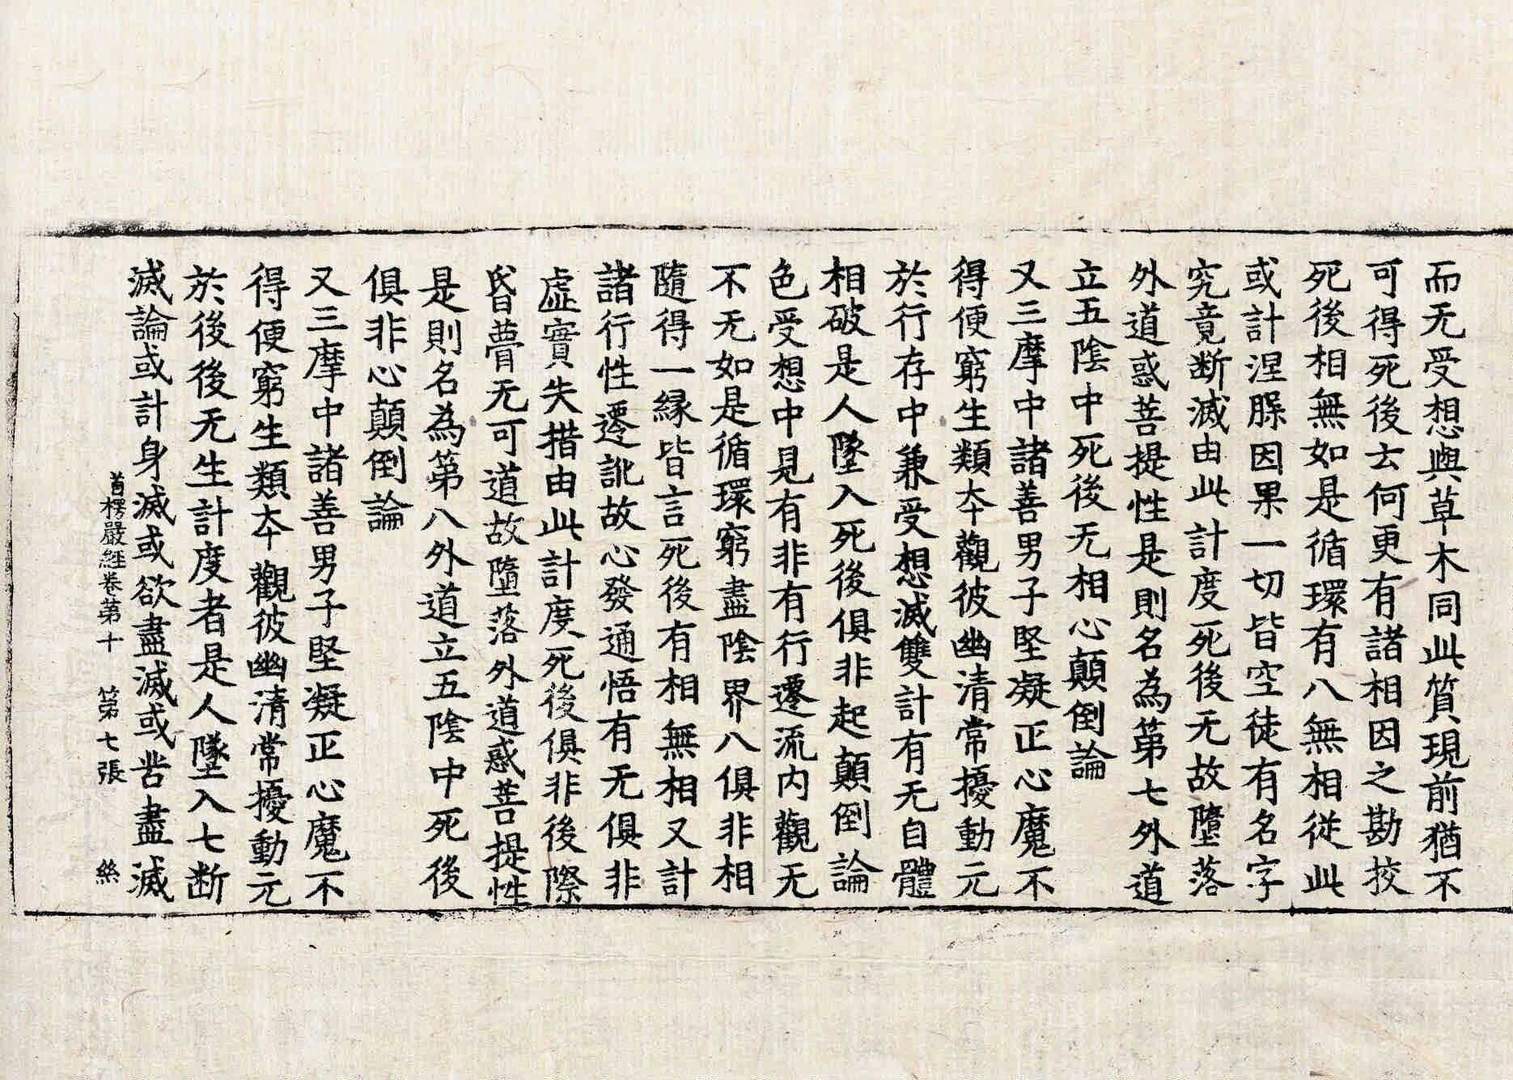 而无受想與草木同此質現前猶不
可得死後云何更有諸相因之勘挍
死後相無如是循環有八無相從此
或計涅槃因果一切皆空徒有名字
究竟断滅由此計度死後无故墮落
外道惑菩提性是則名為第七外道
立五陰中死後无相心顛倒論
又三摩中諸善男子堅凝正心魔不
得便窮生類夲觀彼幽清常擾動元
於行存中兼受想滅雙計有无自體
相破是人墜入死後俱非起顛倒論
色受想中見有非有行遷流内觀无
不无如是循環窮盡陰界八俱非相
隨得一縁皆言死後有相無相又計
諸行性遷訛故心發通悟有无俱非
虛實失措由此計度死後俱非後際
昏瞢无可道故墮落外道惑菩提性
是則名為第八外道立五陰中死後
俱非心顛倒論
又三摩中諸善男子堅凝正心魔不
得便窮生類夲觀彼幽清常擾動元
於後後无生計度者是人墜入七断
滅論或計身滅或欲盡滅或苦盡滅
首楞嚴經卷第十 第七張 絲